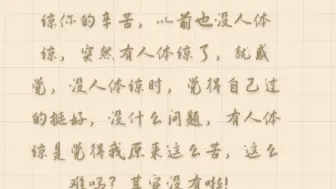 谅你的辛苦，以前也没人体
谅，突然有人体谅了，就感
觉，没人体谅时，觉得自己过
的挺好，没什么问题，有人体
谅是觉得我原来这么苦，这么
难吗？其实没有啦！